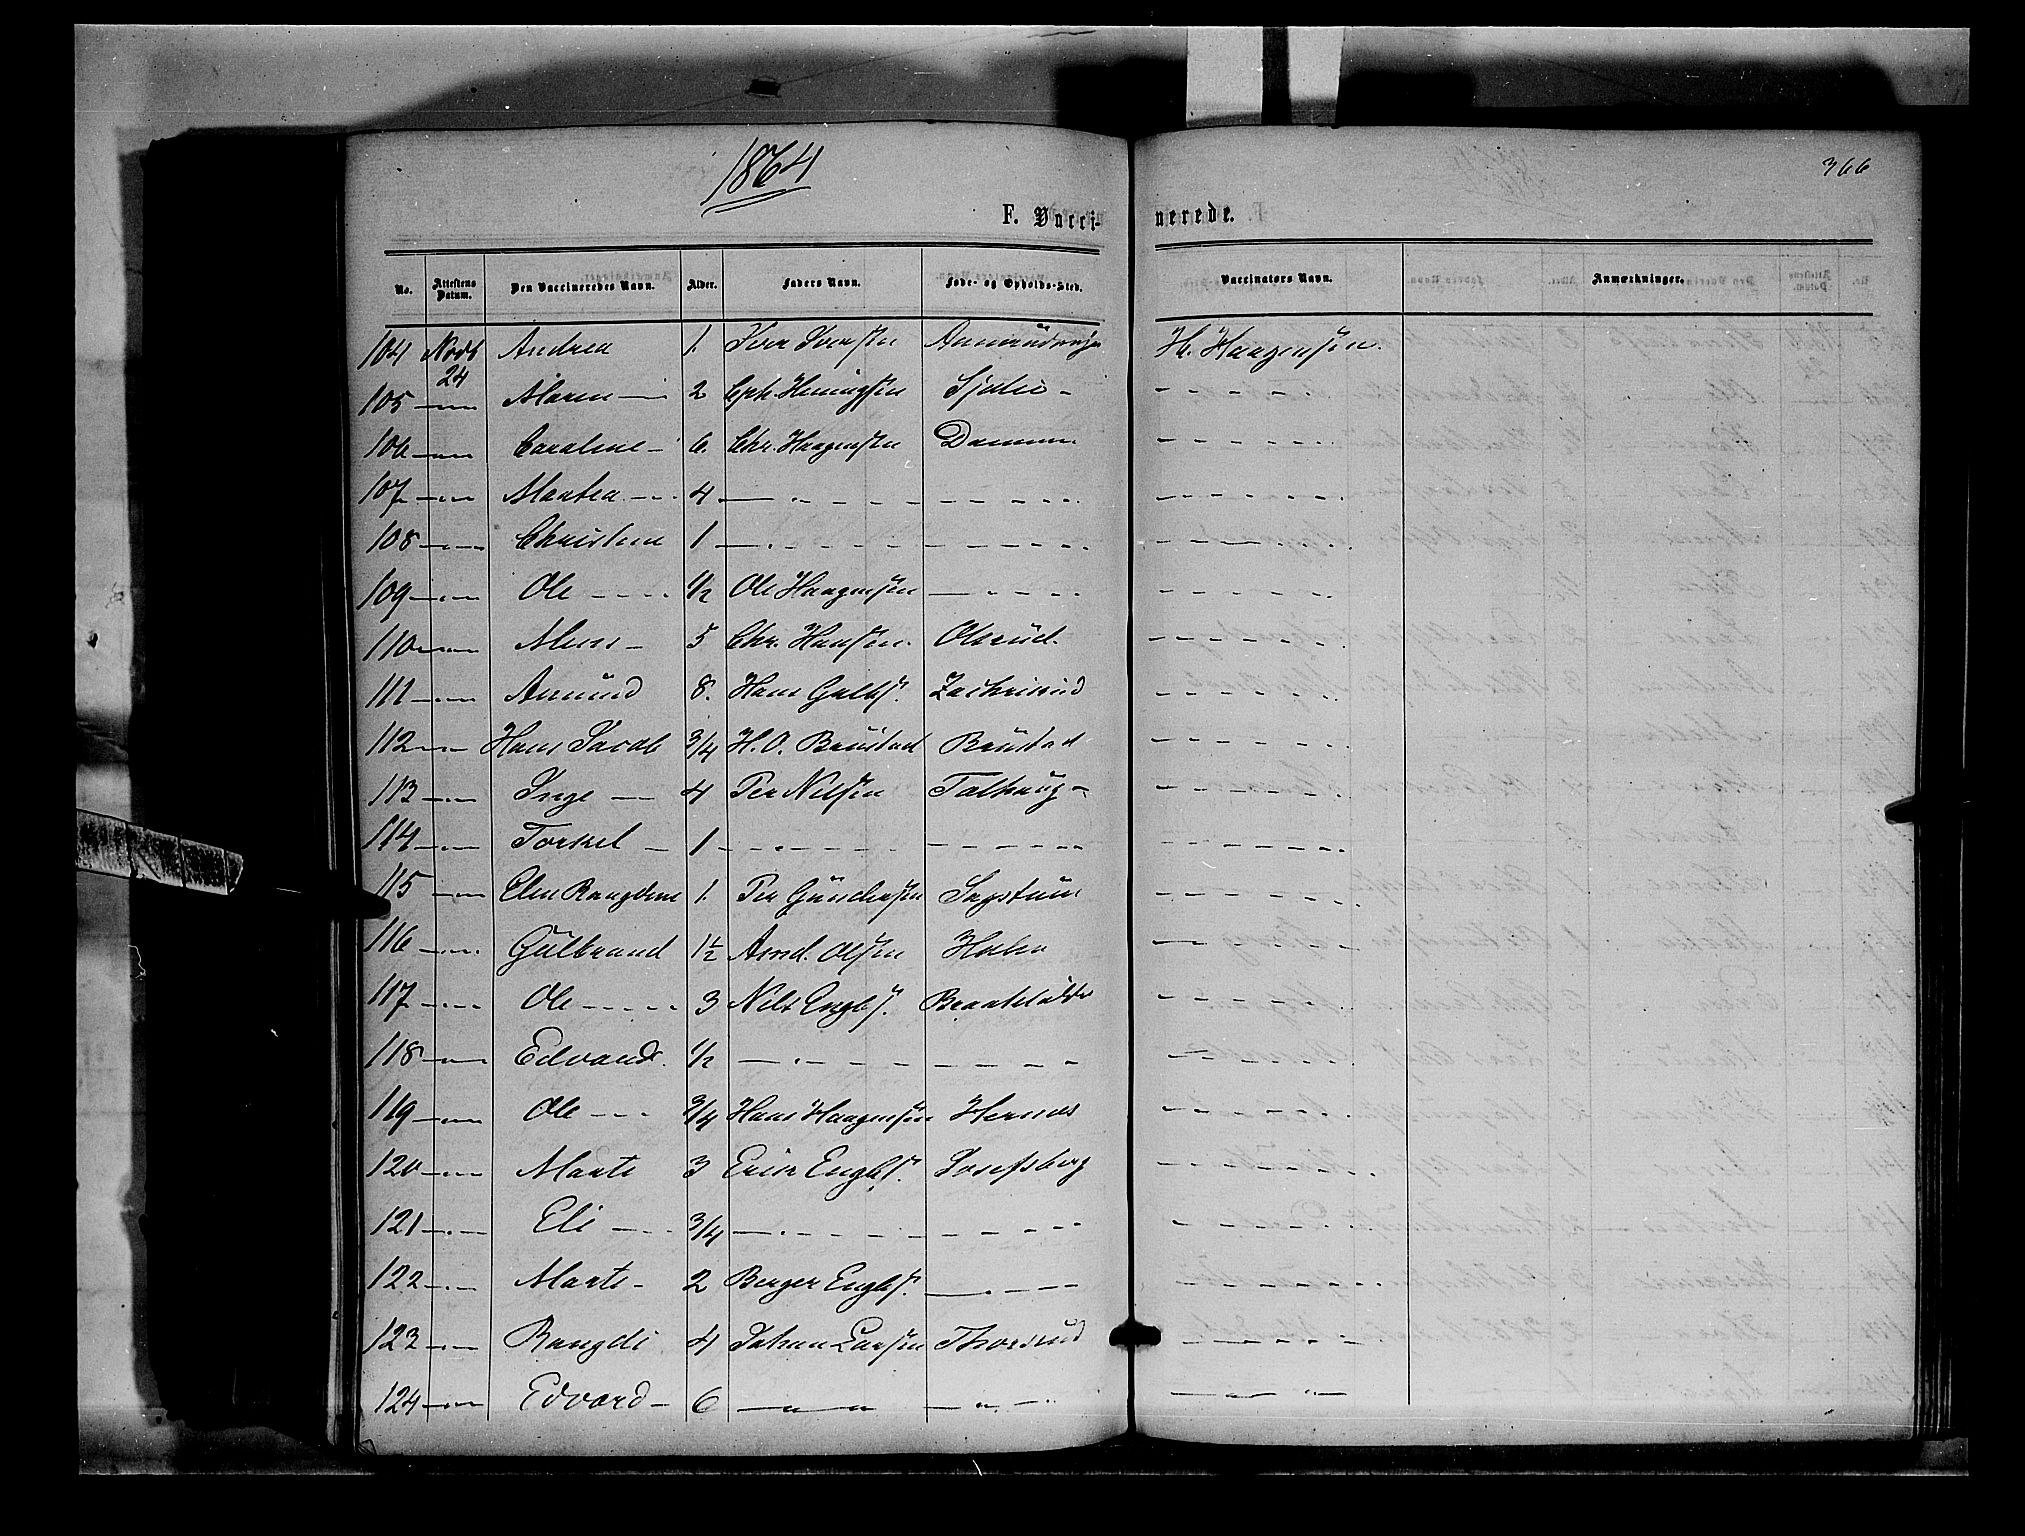 1864
366
F. Vacci- nerede.
No. Attestens Datum. Den Vaccineredes Navn. Alder. Faders Navn. Føde- og Opholds-Sted. Vaccinators Navn. Anmærkninger.
104 Novb 24 Andrea 1. Iver Iversen H. Haagensen.
105 Maren 2 Sjølie
106 Caroline 6. Chr. Haagensen
107 Martea 4
108 Christine 1
109 Ole 1/2 Ole Haagensen
110 5 Chr. Hansen. Olerud.
111 Amund 8. Hans Zachrisrud
112 Hans Jacob 3/4 H. O. Brustad Brustad
113 Inge 4 Per Nilsen
114 Torkel 1
115 Elen 1. Per
116 Gulbrand 1½ Arnd. Olsen
117 Ole 3 Nils Englb.
118 Edvard. 1/2
119 Ole 3/4 Hans Haagensen Hernes
120 Marte 3 Eric Englb. Josefsberg
121 Eli 3/4
122 Marte 2 Berger Englb.
123 Rangdi 4 Johan Larsen Thorsrud
124 Edvard 6